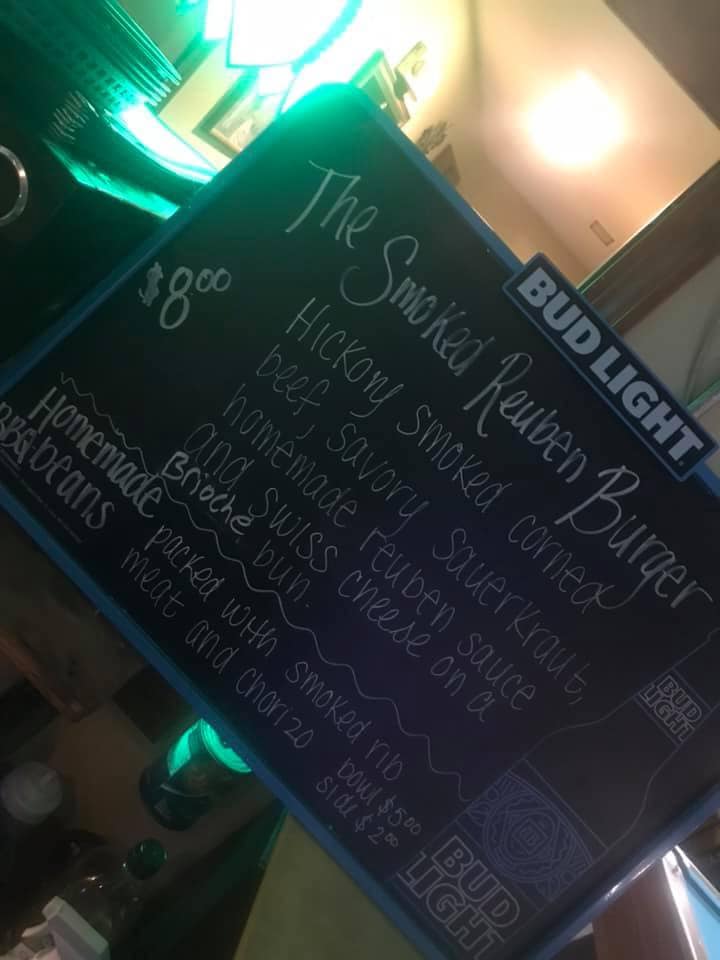 The Smoked Reuben Burger
$8.00
Hickory smoked corned
beef, savory sauerkraut,
homemade reuben sauce
and swiss cheese on a
Brioche bun.
Homemade packed with smoked rib
BBQ beans meat and chorizo
bowl $5.00
side $2.00
BUD LIGHT
BUD
LIGHT
BUD
LIGHT